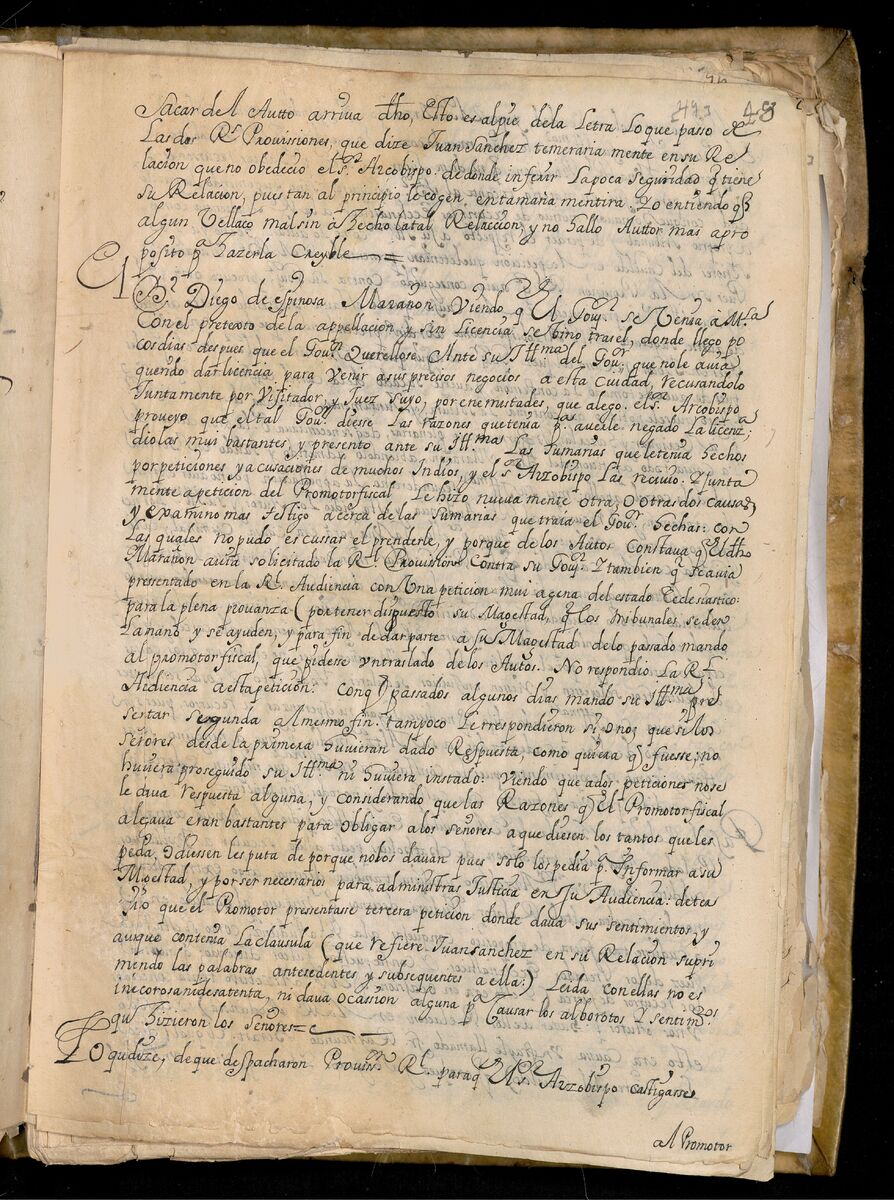 493 48
Sacar del Autto arriva dho, Esto es alpie dela Letra Lo que paso
Las dos Rs Provissiones, que dize Juan Sanchez temeraria mente en su Re
lacion que no obedecio el sr Arcobispo. de donde inferir Lapoca seguridad q tiene
su Relacion, pues tan al principio le cogen entamaña mentira. Yo entiendo q
algun Vellaco malsin à hecho latal Relaccion, y no hallo Auttor mas apro
posito pa hazerla Creyble
El Br Diego de espinosa Marañon Viendo q El Gour se Venia à Mla
Con el pretexto de la appellacion, y sin licencia se vino tras el, donde llego po
cos dias despues que el Gour Querellose Ante su Illma del Gour que nole auia
querido dar licencia para Venir asus precisos negocios a esta Ciudad, recusandolo
Juntamente por Visitador, y Juez suyo, por enemistades, que alego. el sr Arcobispo
proveyo que el tal Gour diesse Las razones que tenia pa averle negado La licenza;
diolas mui bastantes, y presento ante su Illma Las Sumarias que le tenia hechos
por peticiones y acusaciones de muchos Indios, y el sr Arzobispo Las reciuio. Y junta
mente a peticion del Promotor fiscal Le hizo nueva mente otra, o otras dos causas
y examino mas testigo acerca de las Sumarias que traia el Gour hechas: con
Las quales no pudo escussar el prenderle, y porque de los Autos Constava q el dho
Marañon auia solicitado la Rl Provision Contra su Gour Y tambien q se auia
presentado en la Rl Audiencia con Una peticion mui agena del estado Ecclesiastico:
para la plena provanza (por tener dispuesto su Magestad, q los tribunales se den
La mano y se ayuden, y para fin de dar parte à su Magestad delo passado mando
al promotor fiscal, que pidiese un traslado de los Autos. No respondio La Rl
Audiencia a esta peticion: con q passados algunos dias mando su Illma pre
sentar segunda al mesmo fin: tampoco Le respondieron si, o no; que si los
señores desde la primera huvieran dado Respuesta, como quiera q fuesse; no
huviera proseguido su Illma ni huviera instado: Viendo que ados peticiones nose
le dava respuesta alguna, y considerando que las Razones q El Promotor fiscal
alegava eran bastantes para obligar a los señores a que diesen los tantos queles
pedia, o diessen les de porque no los davan pues solo los pedia pa Informar a su
Magestad, y por ser necesarios para administrar Justicia en su Audiencia: deter
mino que el Promotor presentasse tercera peticion donde dava sus sentimientos, y
aunque contenia La clausula (que refiere Juan sanchez en su Relacion supri
mendo las palabras antesedentes y subsequentes a ella:) Leida con ellas no es
inecorosa ni desatenta, ni dava ocassion alguna pa Causar los alborotos Y sentimos
que hizieron los señores
Lo que dize, de que despacharon Provision Rl para q El sr Arzobispo castigasse
al Promotor